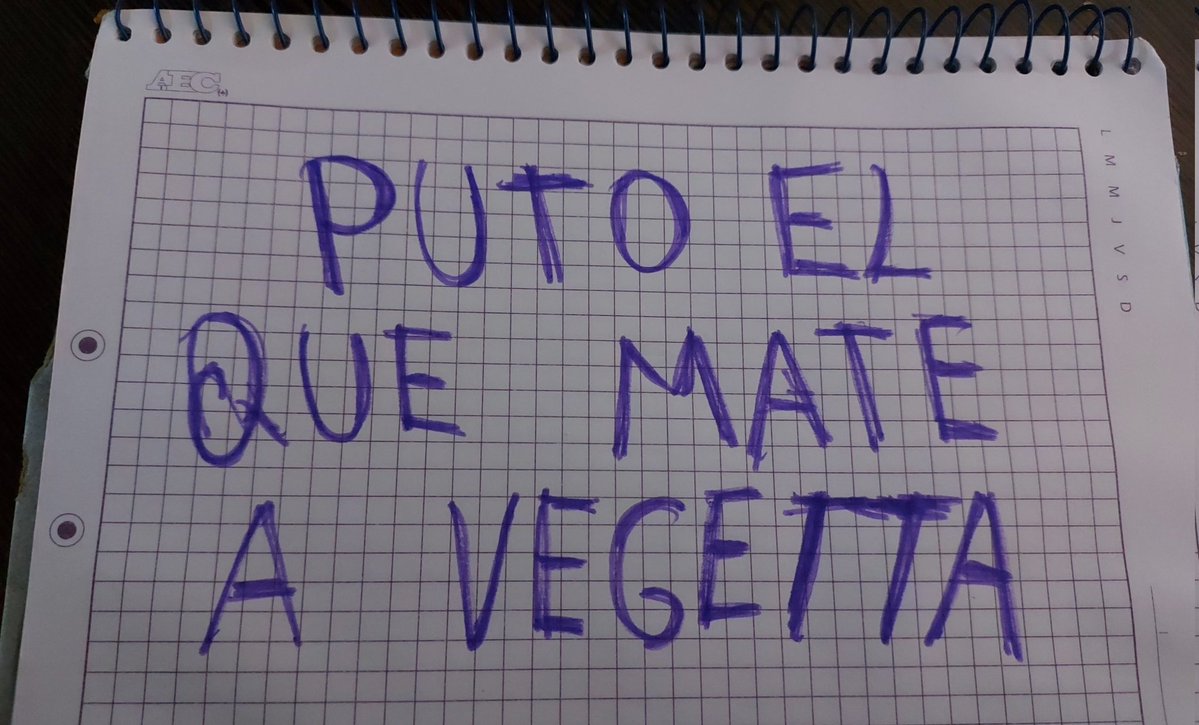 AEC
L M M J V S D
PUTO EL
QUE MATE
A VEGETTA